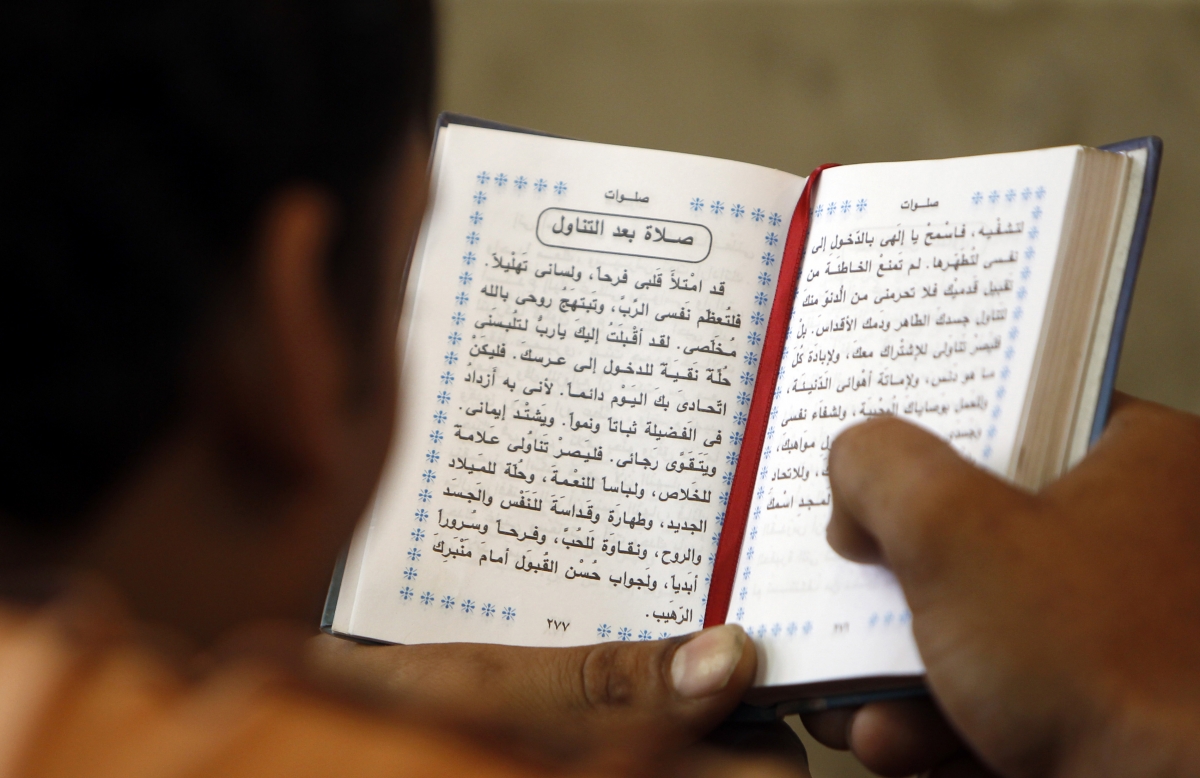 صلـوات
لتشفيه، فاسْمحْ يا إلَهى بالدّخول إلى
نفسى لتُطهّرها. لم تَمنعْ الخاطئَة من
تقبيل قدميْك فلا تحرمنى من الدنوّ منكَ
لتناول جسدكَ الطاهر ودَمك الأقداسَ. بلْ
فليصرْ تناولى للإشْتراك معكَ، ولإبادَة كُلّ
ما هو دنس، ولإماتَة أهْوائى الدّنيئَة،
وللعمل بوَصاياك المُحْييَة، ولشفَاء نفسى
وجسدى
مَواهبكَ،
وللاتحاد
لمجدِ اسْمكَ
٢٧٦
صلـوات
صــلاة بعد التناول
قد امْتلَأَ قَلبى فرحاً، ولسانى تَهْليلاً
فلتُعظّم نَفسى الرّبَّ، وتَبتهجُ روحى بالله
مُخلّصى. لقد أقْبلَتُ إليك ياربُّ لتُلبسَنى
حُلّة نقـيـَة للدخول إلى عـرسـكَ. فليكَنْ
اتّحادى بكَ اليـَوْم دائمـاً. لأنى به أزْدادُ
فى الفَضيلة ثَباتاً ونمواً. ويشتْـدَ إيمانى.
ويَتـقـوَّى رَجائى. فليَصرْ تَناوُلى عَلامـةَ
للخَلاص، ولباساً للنعْمـةَ، وحُلّة للميلاد
الجديد، وطهارَة وقَداسةَ للنَفْس والجَسدَ
والروح، ونقـاوَة للحُبَّ، وفرحـاً وسُـروراً
أبَدياً، ولجواب حُسْن القُبول أمامَ مَنْبَرِكَ
الرَهيب.
٢٧٧